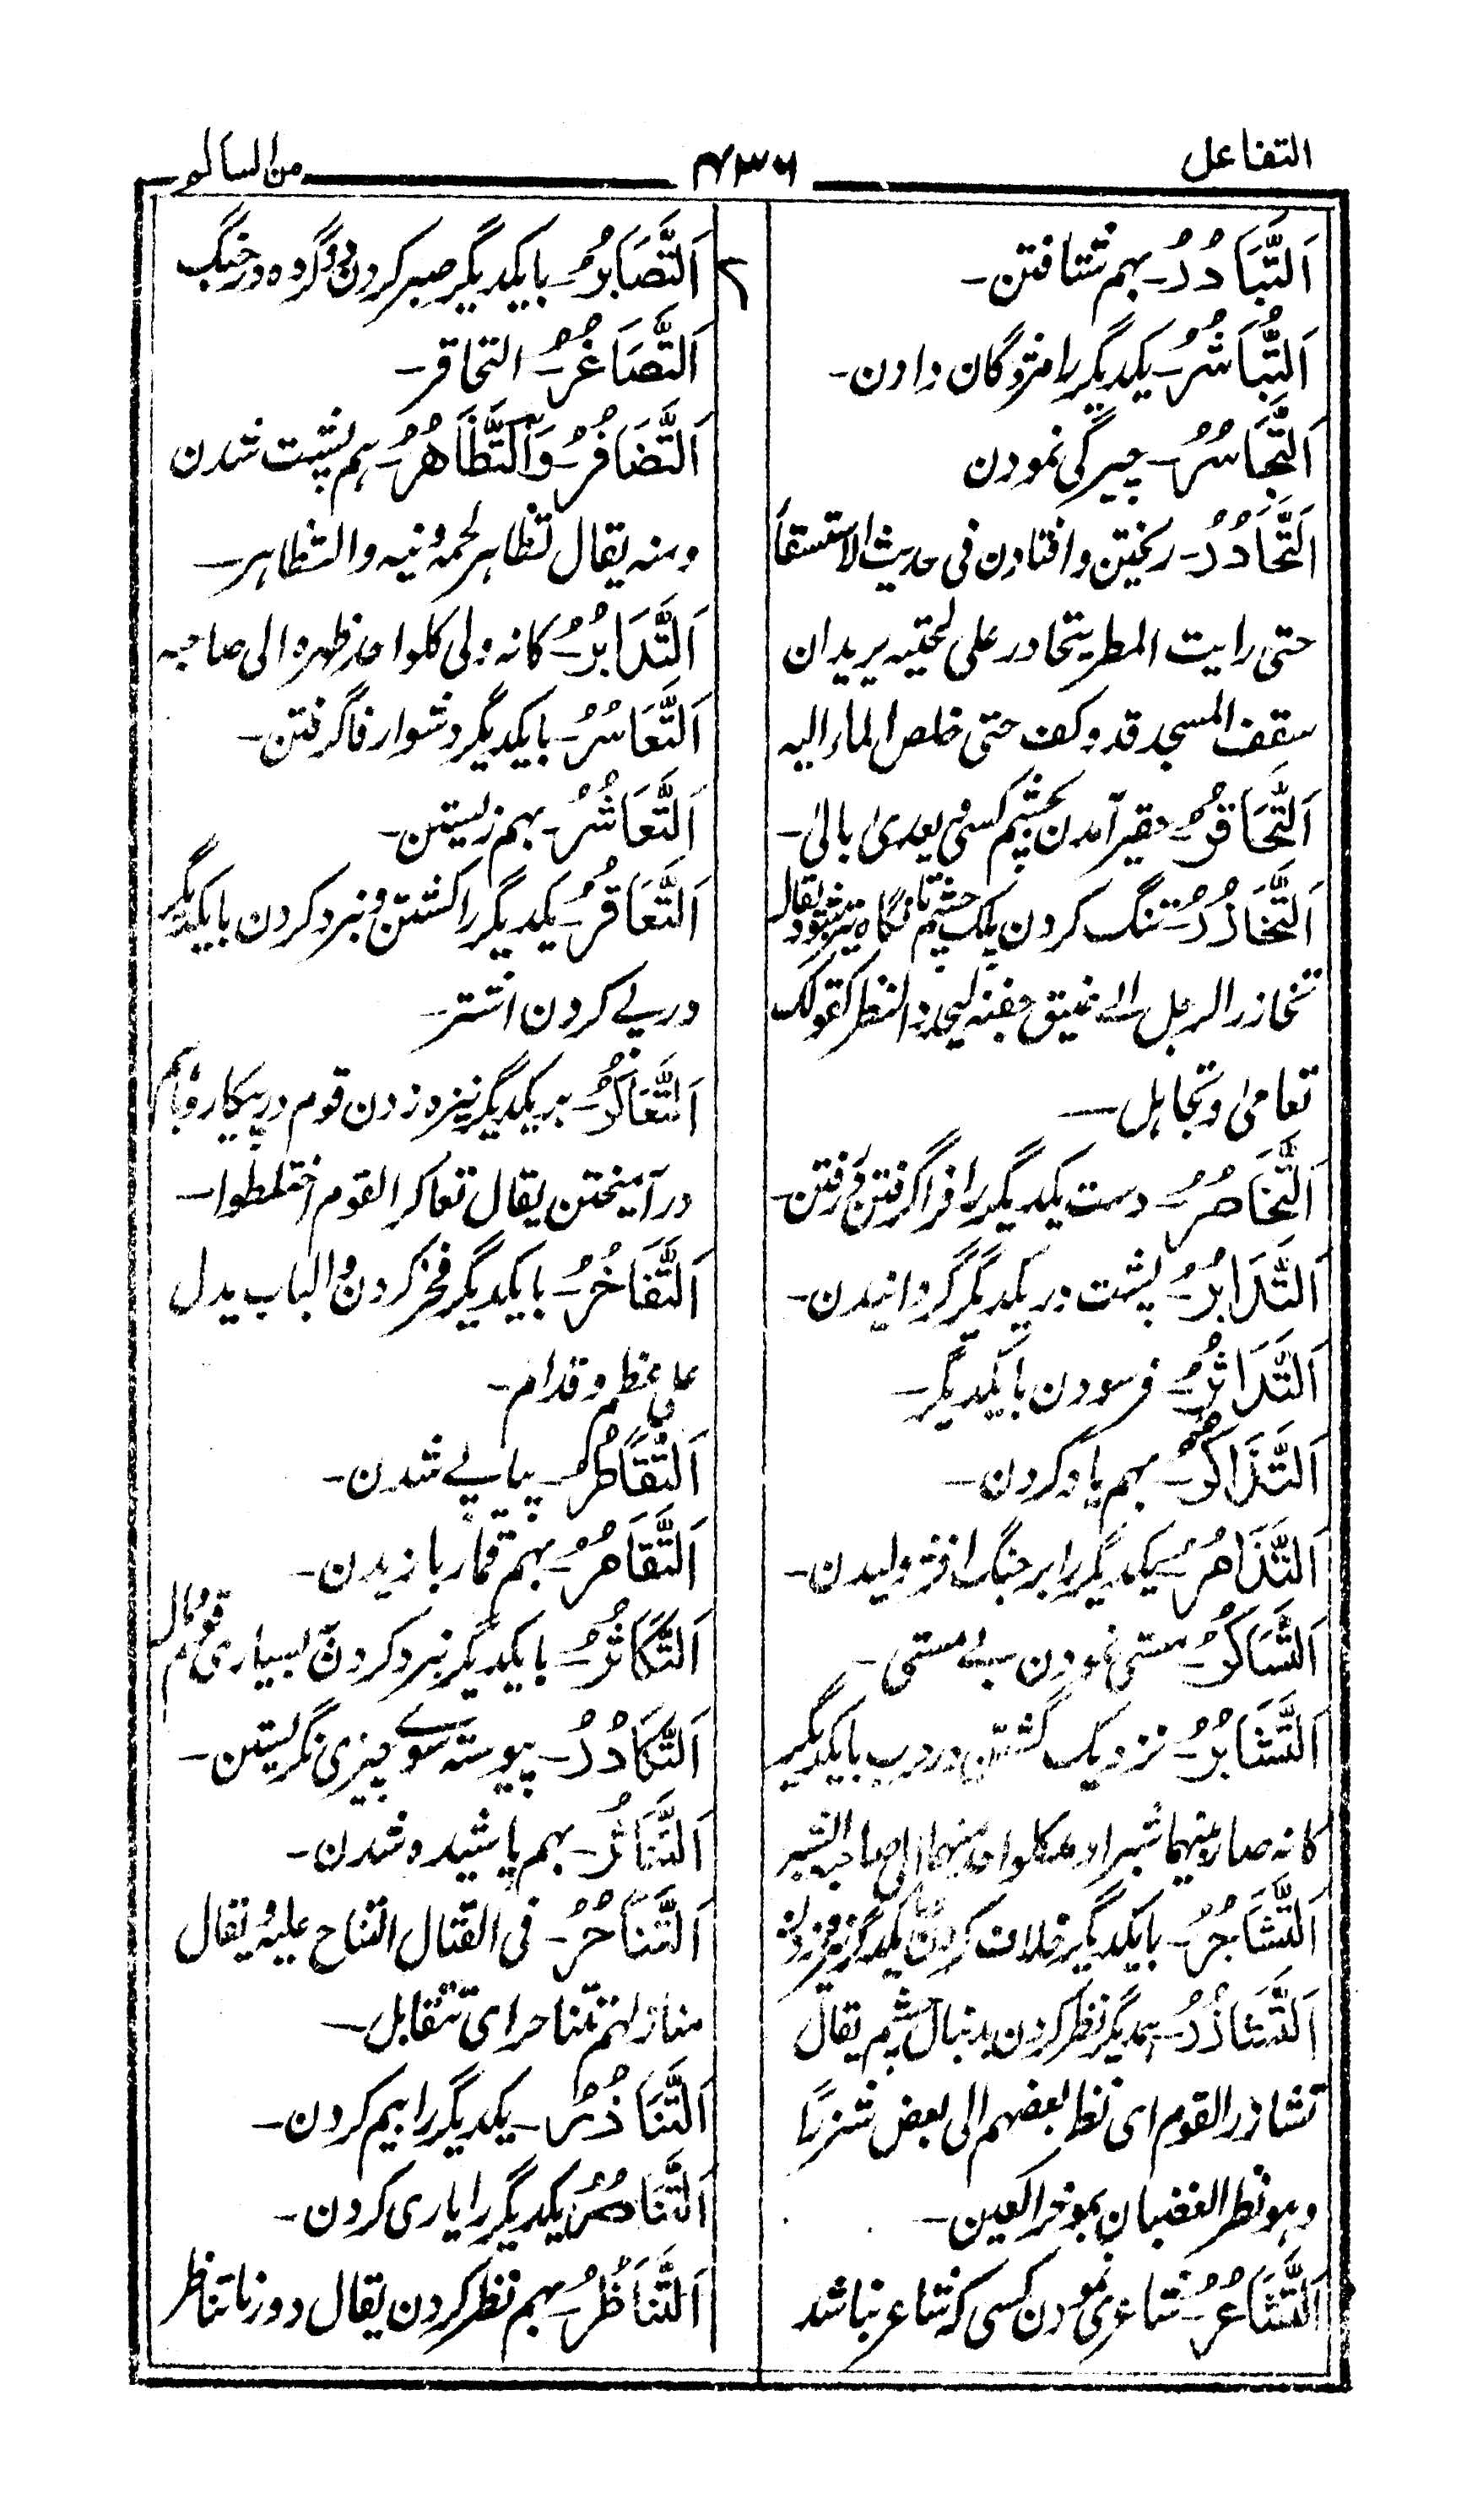 التفاعل
۷۳۶
من السالم
اَلتَّبَادُرُ۔ بہم شتافتن۔
اَلتَّبَاشُرُ۔ یکدیگر را مژدگان دادن۔
اَلتَّجَاسُرُ۔ چیرگی نمودن
اَلتَّحَادُرُ۔ ریختن و افتادن فی حدیث الاستسقاء
حتی رایت المطر یتحادر علی لحیتہ یریدان
سقف المسجد قد وکف حتی خلص الماء الیہ
اَلتَّحَاقُرُ۔ حقیر آمدن بچشم کسی و یعدیٰ بالیٰ۔
اَلتَّخَازُرُ۔ تنگ کردن پلک چشم تا نگاہ تیز شود یقال
تخازر الرجل اے ضیق جفنہ لیحدد النظر کقولک
تعامیٰ و تجاہل۔
اَلتَّخَاصُرُ۔ دست یکدیگر را فراگرفتن در رفتن۔
اَلتَّدَابُرُ۔ پشت در یکدیگر گردانیدن۔
اَلتَّدَاثُرُ۔ فرسودن بایکدیگر۔
اَلتَّذَاكُرُ۔ بہم یاد کردن۔
اَلتَّذَامُرُ۔ یکدیگر را بر جنگ افژولیدن۔
اَلتَّسَاكُرُ۔ مستی نمودن بے مستی۔
اَلتَّشَابُرُ۔ نزدیک گشتن در حرب بایکدیگر
کانہ صار بینہما شبر او مد کلواحد منہما الی صاحبہ الشبر
اَلتَّشَاجُرُ۔ بایکدیگر خلاف کردن و یکدیگر را نیزہ زدن
اَلتَّشَازُرُ۔ بہمدیگر نظر کردن بدنبال چشم یقال
تشازر القوم ای نظر بعضہم الی بعض شزرًا
وہو نظر الغضبان بموخر العین۔
اَلتَّشَاعُرُ۔ شاعری نمودن کسی کہ شاعر نباشد
اَلتَّصَابُرُ۔ بایکدیگر صبر کردن دو گروہ در جنگ
اَلتَّصَاغُرُ۔ التحاقر۔
اَلتَّضَافُرُ۔ وَالتَّظَاهُرُ۔ ہم پشت شدن
ومنہ یقال تظاہر لحمہ ونیہ والتظاہر۔
اَلتَّدَابُرُ۔ کانہ ولی کلواحد ظہرہ الی صاحبہ
اَلتَّعَاسُرُ۔ بایکدیگر دشوار فاگرفتن۔
اَلتَّعَاشُرُ۔ بہم زیستن۔
اَلتَّعَاقُرُ۔ یکدیگر را کشتن و نبرد کردن بایکدیگر
در پے کردن اشتر۔
اَلتَّعَاكُرُ۔ بر یکدیگر نیزہ زدن قوم در پیکار و باہم
در آمیختن یقال تعاکر القوم اختلطوا۔
اَلتَّفَاخُرُ۔ بایکدیگر فخر کردن و الباب یدل
علی عظم و قدام۔
اَلتَّقَاطُرُ۔ پیاپے شدن۔
اَلتَّقَامُرُ۔ بہم قمار بازیدن۔
اَلتَّكَاثُرُ۔ بایکدیگر نبرد کردن بسیاری قوم و مال
اَلتَّكَادُرُ۔ پیوستہ سوے چیزی نگریستن۔
اَلتَّنَاثُرُ۔ بہم پاشیدہ شدن۔
اَلتَّنَاحُرُ۔ فی القتال التناح علیہ و یقال
منازلہم تتناحر ای تتقابل۔
اَلتَّنَاذُرُ۔ یکدیگر را بیم کردن۔
اَلتَّنَاصُرُ۔ یکدیگر را یاری کردن۔
اَلتَّنَاظُرُ۔ بہم نظر کردن یقال دورنا تناظر